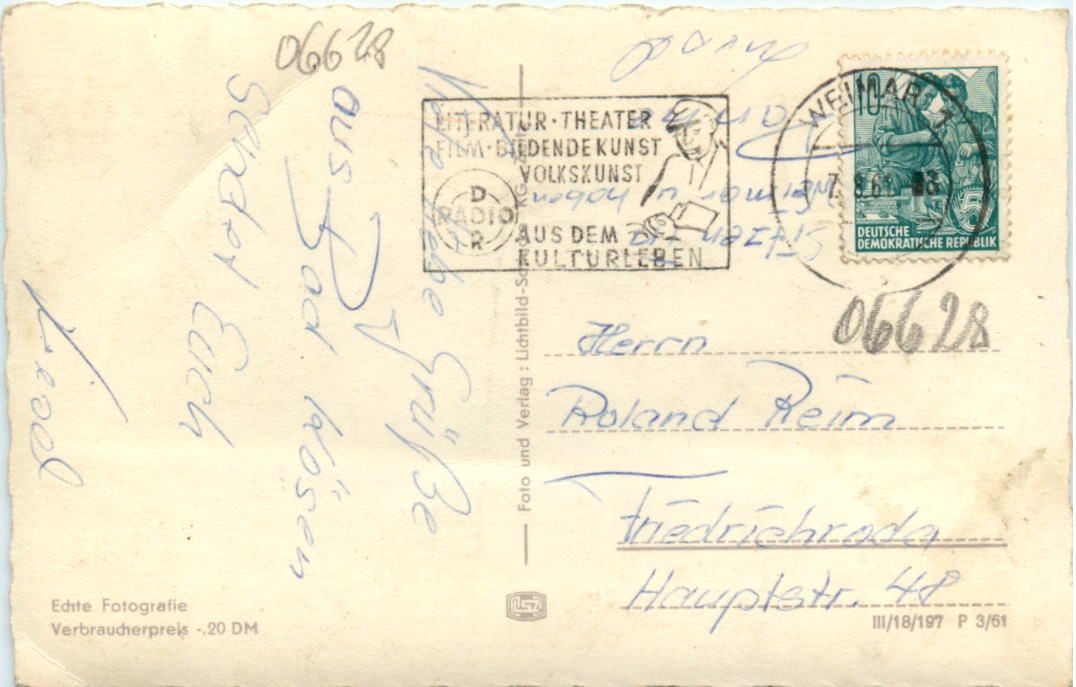 06628
Viele liebe Grüße
aus Bad Kösen
sendet Euch
LITERATUR · THEATER
FILM · BILDENDE KUNST
VOLKSKUNST
AUS DEM
KULTURLEBEN
RADIO
DDR
WEIMAR 1
10
5
DEUTSCHE
DEMOKRATISCHE REPUBLIK
Weimar u. haben
06628
Herrn
Roland Reim
Friedrichroda
Hauptstr. 48
Foto und Verlag: Lichtbild-
KG.
Echte Fotografie
Verbraucherpreis -.20 DM
III/18/197 P 3/61